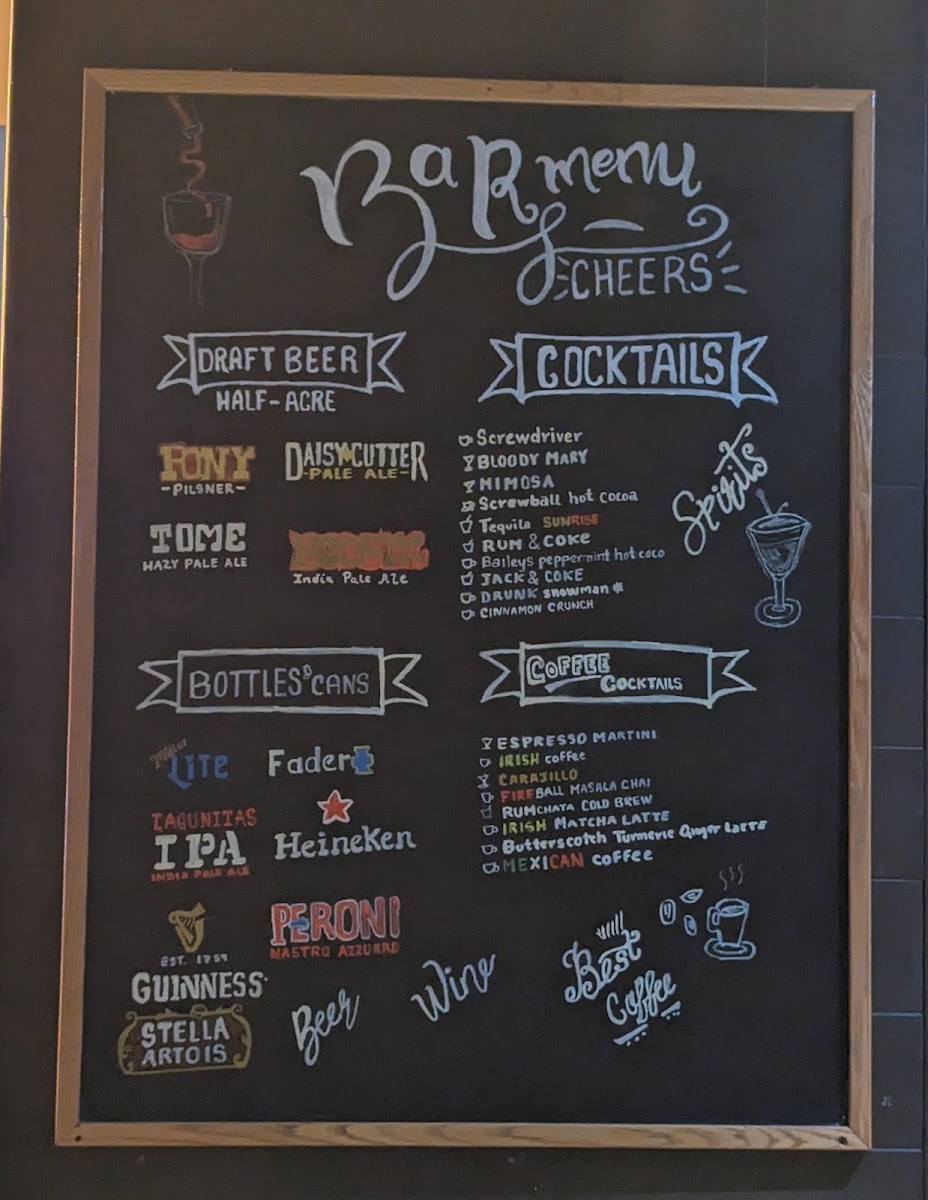 BaR menu
CHEERS
DRAFT BEER
HALF-ACRE
PONY
-PILSNER-
DAISY CUTTER
-PALE ALE-
TOME
HAZY PALE ALE
India Pale Ale
COCKTAILS
Screwdriver
BLOODY MARY
MIMOSA
Screwball hot cocoa
Tequila SUNRISE
RUM & COKE
Baileys peppermint hot coco
JACK & COKE
DRUNK snowman
CINNAMON CRUNCH
Spirits
BOTTLES & CANS
Miller
LITE
Fader
LAGUNITAS
IPA
INDIA PALE ALE
HeineKen
EST. 1759
GUINNESS
PERONI
NASTRO AZZURRO
STELLA
ARTOIS
Beer
Wine
COFFEE
COCKTAILS
ESPRESSO MARTINI
IRISH coffee
CARAJILLO
FIREBALL MASALA CHAI
RUMCHATA COLD BREW
IRISH MATCHA LATTE
Butterscotch Turmeric Ginger Latte
MEXICAN coffee
Best
Coffee